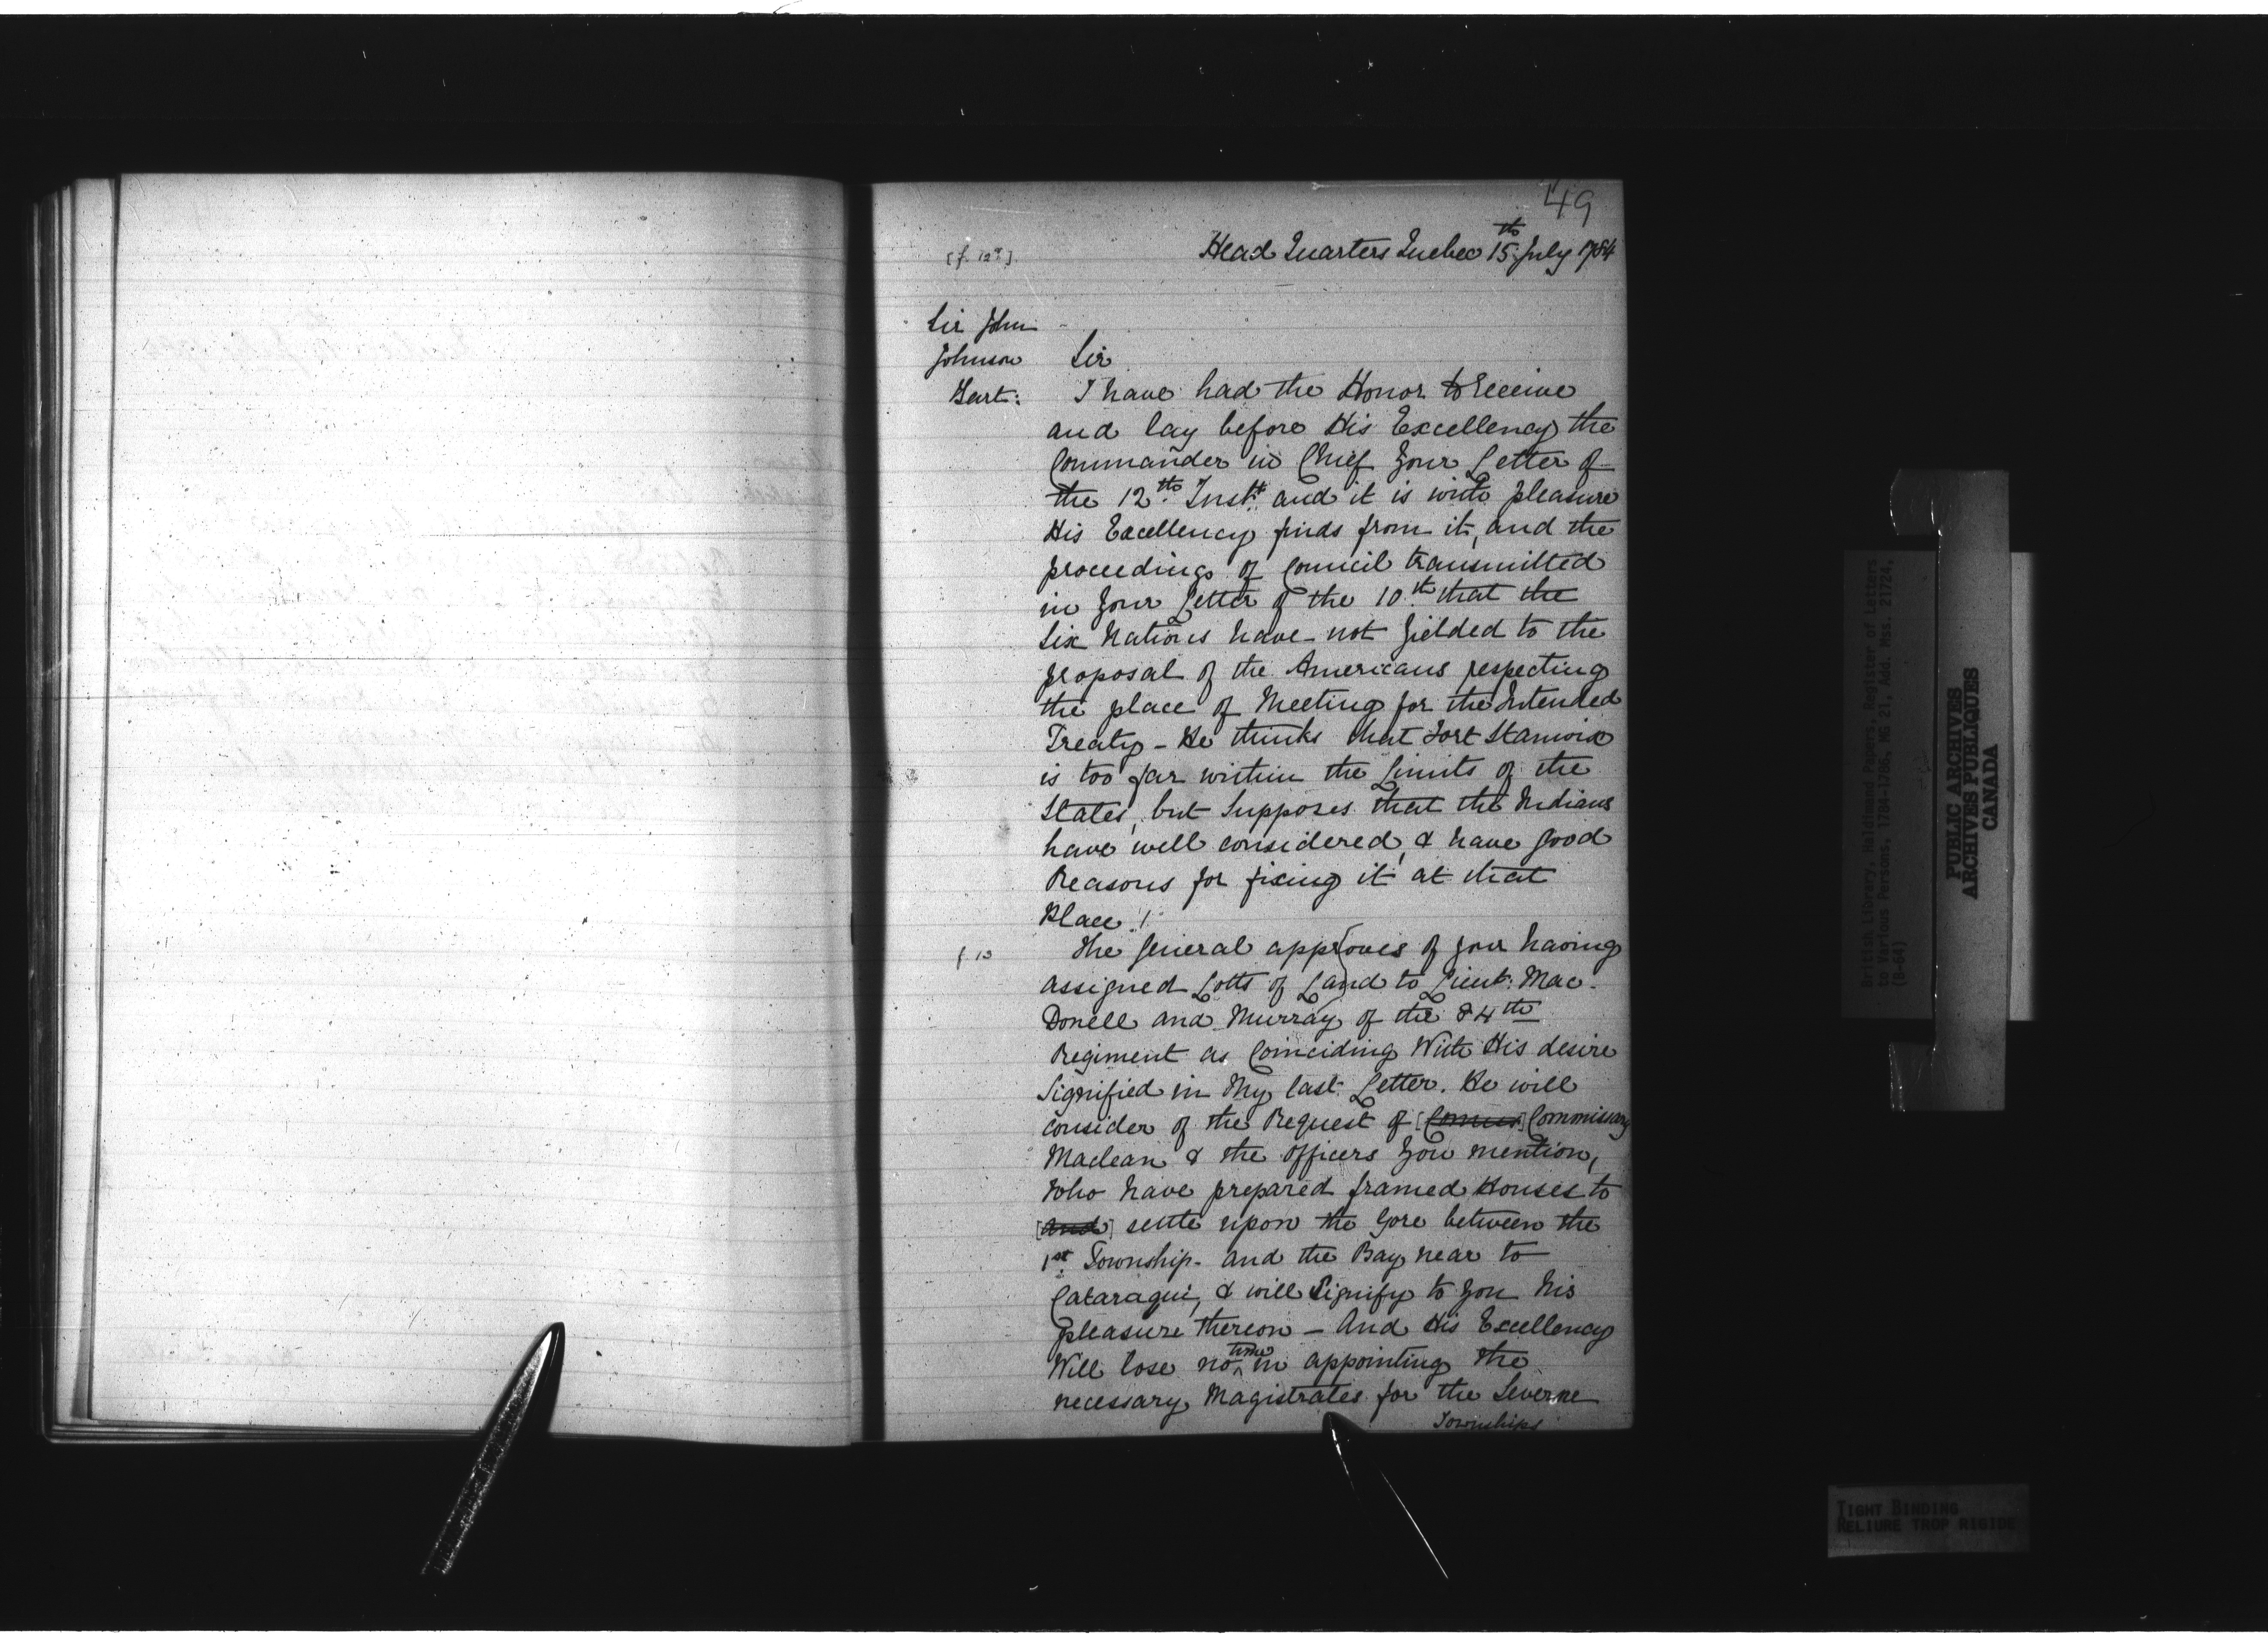 49
Head Quarters Quebec 15th July 1784
Sir John
Johnson
Bart:
Sir
I have had the Honor to receive
and lay before His Excellency the
Commander in Chief Your Letter of
the 12th Inst: and it is with pleasure
His Excellency finds from it, and the
proceedings of Council transmitted
in Your Letter of the 10th that the
Six Nations have not yielded to the
proposal of the Americans respecting
the place of Meeting for the Intended
Treaty - He thinks that Fort Stanwix
is too far within the Limits of the
States, but Supposes that the Indians
have well considered, & have good
Reasons for fixing it at that
Place.
f. 13
The General approves of your having
assigned Lotts of Land to Lieut: Mac-
Donell and Murray of the 84th
Regiment as Coinciding With His desire
Signified in My last Letter. He will
consider of the Request of [Comis] Commissary
Maclean & the Officers You mention,
Who have prepared framed Houses to
[and] settle upon the Gore between the
1st Township and the Bay near to
Cataraqui, & will Signify to You his
pleasure thereon - And His Excellency
Will lose no time in appointing the
necessary Magistrates for the Severne
Townships
British Library, Haldimand Papers, Register of Letters
to Various Persons, 1784-1786, MG 21, Add. Mss. 21724,
(B-64)
PUBLIC ARCHIVES
ARCHIVES PUBLIQUES
CANADA
TIGHT BINDING
RELIURE TROP RIGIDE